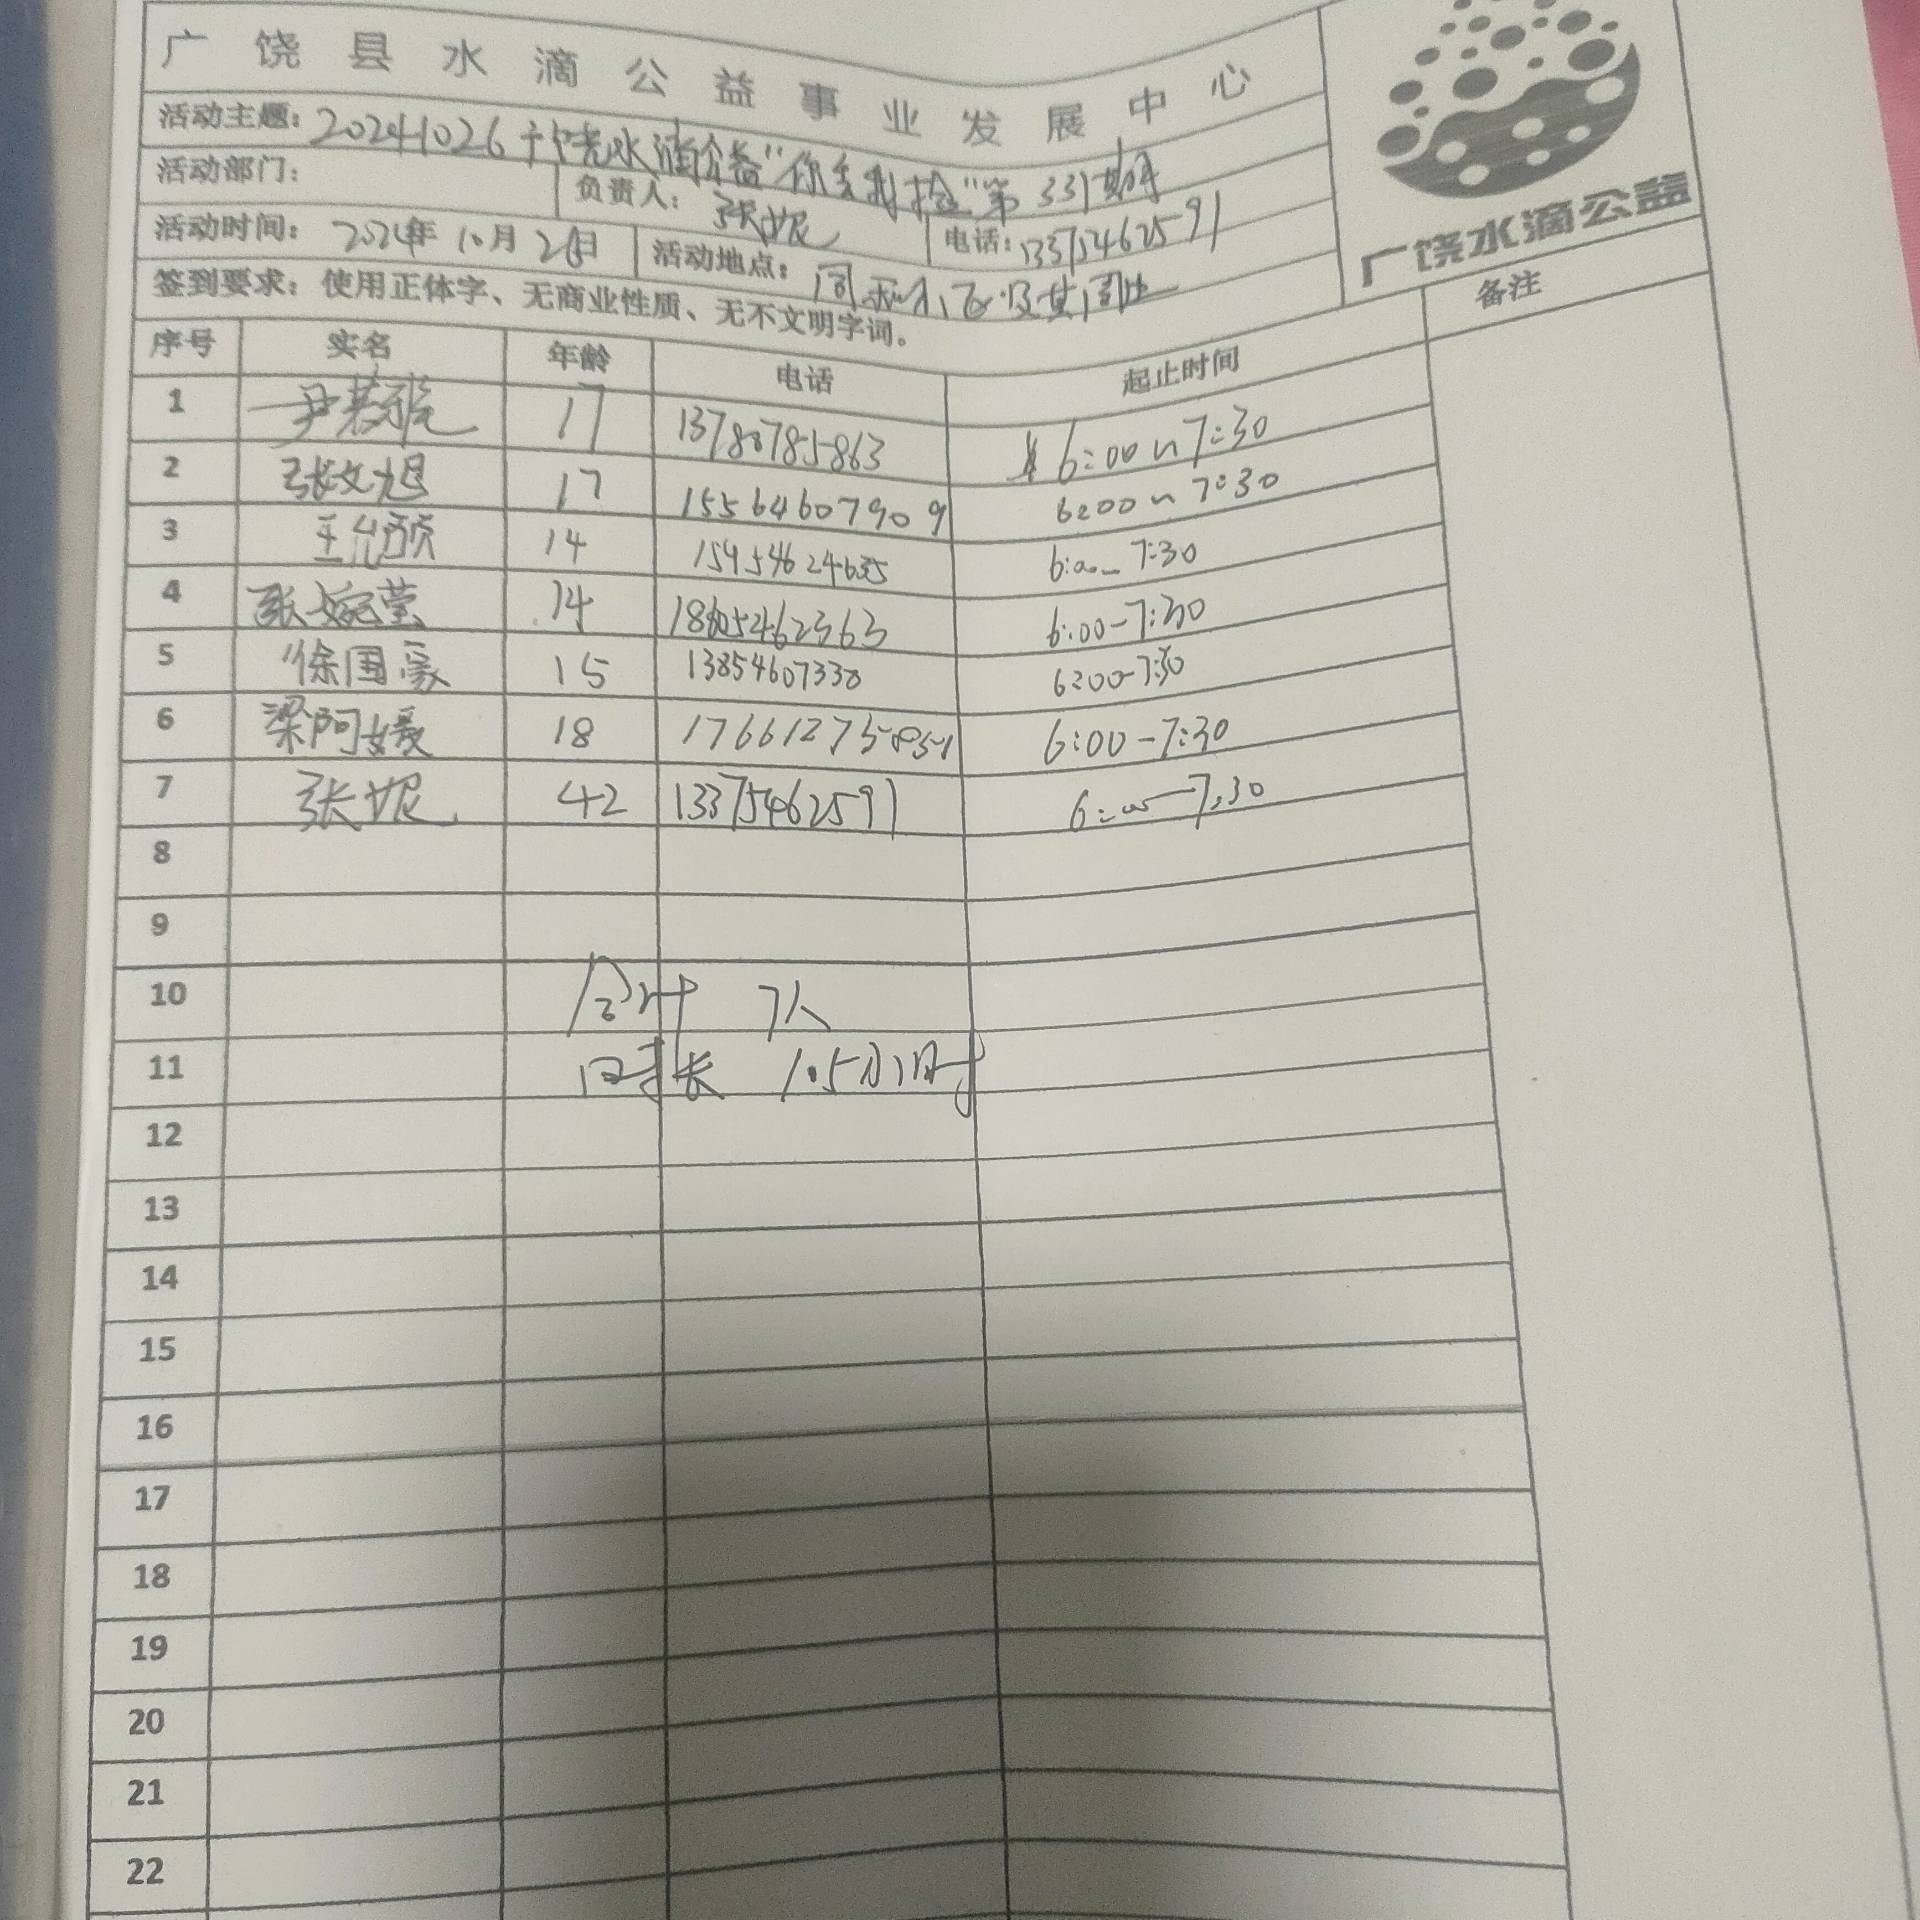 广饶县水滴公益事业发展中心
活动主题: 20241026广饶水滴公益"你丢我捡"第331期
活动部门: 负责人: 张妮 电话: 13375462591
活动时间: 2024年10月26日 活动地点: 同和小区及其周边
签到要求: 使用正体字、无商业性质、无不文明字词。
广饶水滴公益
序号 实名 年龄 电话 起止时间 备注
1 17 13780785863 6:00~7:30
2 张文旭 17 15564607909 6:00~7:30
3 王允颀 14 15954624635 6:00-7:30
4 张婉莹 14 18605462363 6:00-7:30
5 徐国豪 15 13854607330 6:00-7:30
6 梁阿媛 18 17661275851 6:00-7:30
7 张妮 42 13375462591 6:00-7:30
8
9
10 合计 7人
11 时长 1.5小时
12
13
14
15
16
17
18
19
20
21
22